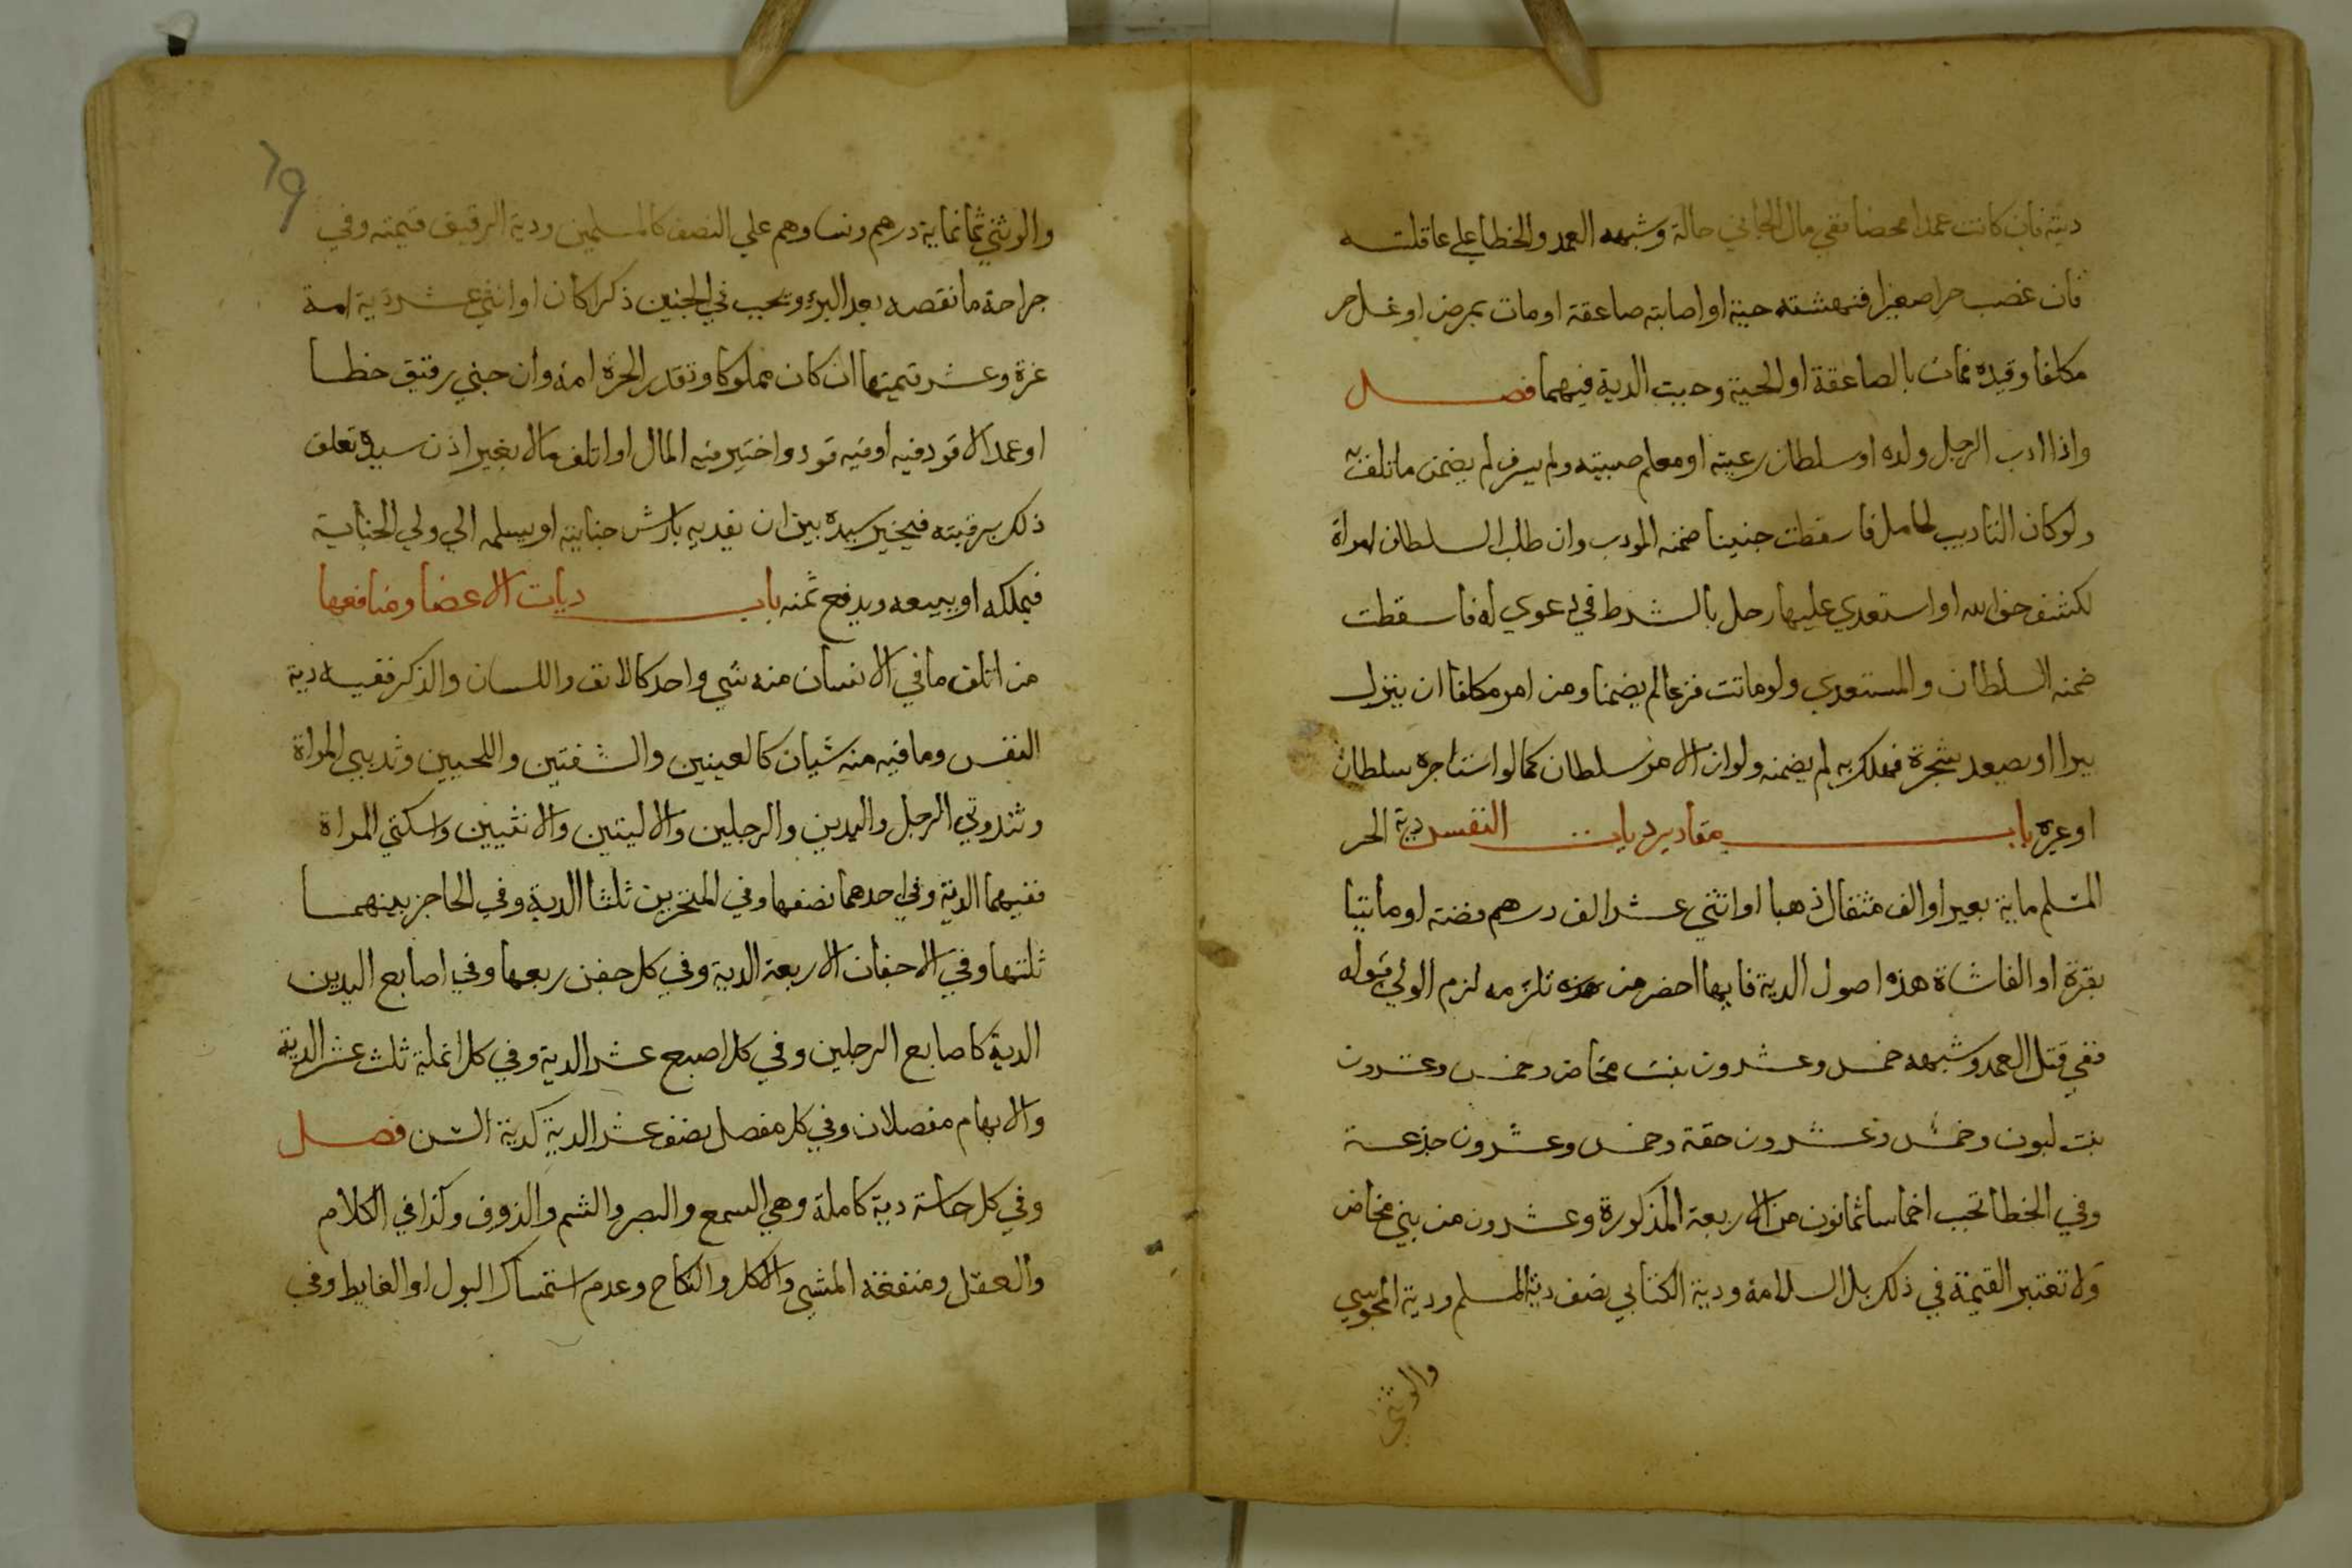 ديته فان كانت عمدا محضا ففي مال الجاني حالة وشبهه العمد والخطا علي عاقلته
فان غصب حرا صغيرا فنهشته حية او اصابته صاعقة او مات بمرض او غل حر
مكلفا وقيده فمات بالصاعقة او الحية وجبت الدية فيهما فصل
واذا ادب الرجل ولده او سلطان رعيته او معلم صبيته ولم يسرف لم يضمن ما تلف به
ولو كان التاديب لحامل فاسقطت جنينا ضمنه المودب وان طلب السلطان امراة
لكشف حق الله او استعدي عليها رجل بالشرط في دعوي له فاسقطت
ضمنه السلطان والمستعدي ولو ماتت فزعا لم يضمنا ومن امر مكلفا ان ينزل
بيرا او يصعد شجرة فهلك به لم يضمنه ولو ان الامر سلطان كما لو استاجره سلطان
او غيره باب مقادير ديات النفس دية الحر
المسلم ماية بعير او الف مثقال ذهبا او اثني عشر الف درهم فضة او مايتا
بقرة او الفا شاة هذه اصول الدية فايها احضر من تلزمه لزم الولي قبوله
ففي قتل العمد وشبهه خمس وعشرون بنت مخاض وخمس وعشرون
بنت لبون وخمس وعشرون حقة وخمس وعشرون جذعة
وفي الخطا تجب اخماسا ثمانون من الاربعة المذكورة وعشرون من بني مخاض
ولا تعتبر القيمة في ذلك بل السلامة ودية الكتابي نصف دية المسلم ودية المجوسي
والوثني
٦٩
والوثني ثمانماية درهم ونساوهم علي النصف كالمسلمين ودية الرقيق قيمته وفي
جراحه ما نقصه بعد البرء وتجب في الجنين ذكرا كان او انثي عشر دية امه
غرة وعشر قيمتها ان كان مملوكا وتقدر الحرة امة وان جني رقيق خطا
او عمدا لا قود فيه او فيه قود واختير فيه المال او اتلف مالا بغير اذن سيده تعلق
ذلك برقبته فيخير سيده بين ان يفديه بارش جنايته او يسلمه الي ولي الجناية
فيملكه او يبيعه ويدفع ثمنه باب ديات الاعضا ومنافعها
من اتلف ما في الانسان منه شي واحد كالانف واللسان والذكر ففيه دية
النفس وما فيه منه شيان كالعينين والشفتين واللحيين وثديي المراة
وثندوتي الرجل واليدين والرجلين والاليتين والانثيين واسكتي المراة
ففيهما الدية وفي احدهما نصفها وفي المنخرين ثلثا الدية وفي الحاجز بينهما
ثلثها وفي الاجفان الاربعة الدية وفي كل جفن ربعها وفي اصابع اليدين
الدية كاصابع الرجلين وفي كل اصبع عشر الدية وفي كل انملة ثلث عشر الدية
والابهام مفصلان وفي كل مفصل نصف عشر الدية كدية السن فصل
وفي كل حاسة دية كاملة وهي السمع والبصر والشم والذوق وكذا في الكلام
والعقل ومنفعة المشي والاكل والنكاح وعدم استمساك البول او الغايط وفي